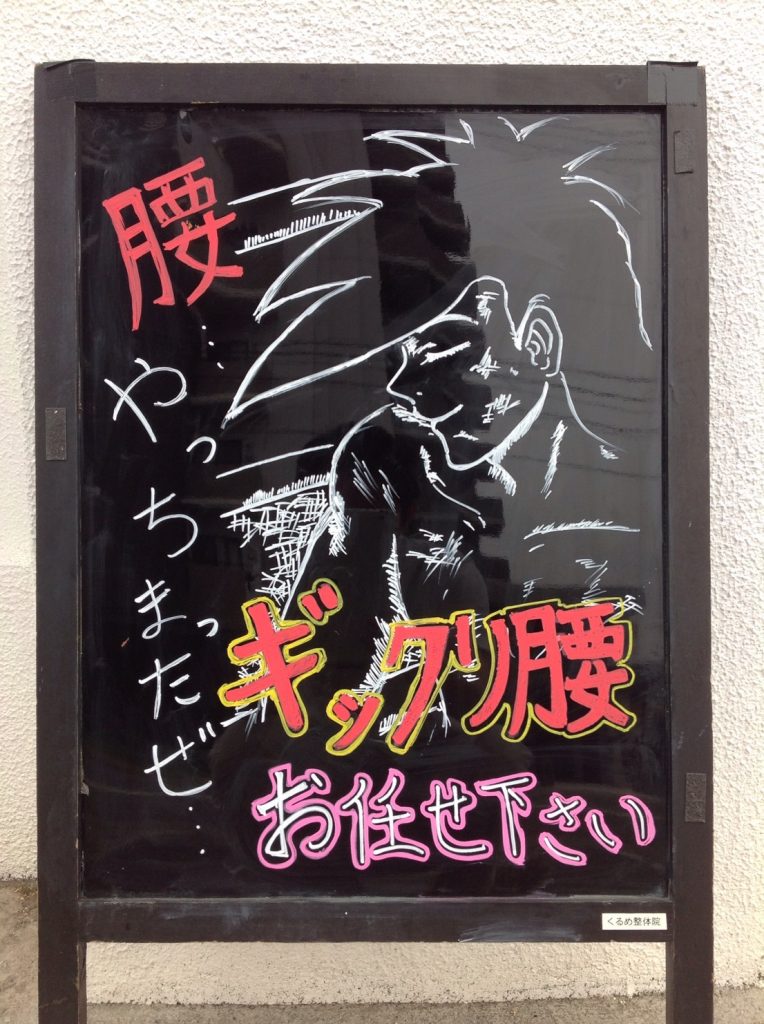 腰…
やっちまったぜ…
ギックリ腰
お任せ下さい
くるめ整体院